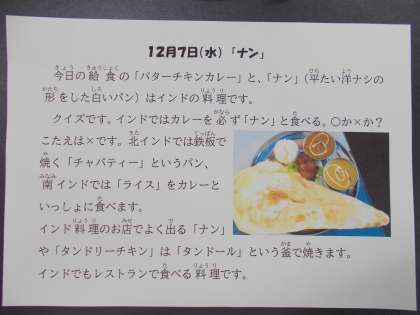 12月7日(水) 「ナン」
今日の給食の「バターチキンカレー」と、「ナン」(平たい洋ナシの
形をした白いパン)はインドの料理です。
クイズです。インドではカレーを必ず「ナン」と食べる。○か×か?
こたえは×です。北インドでは鉄板で
焼く「チャパティー」というパン、
南インドでは「ライス」をカレーと
いっしょに食べます。
インド料理のお店でよく出る「ナン」
や「タンドリーチキン」は「タンドール」という釜で焼きます。
インドでもレストランで食べる料理です。